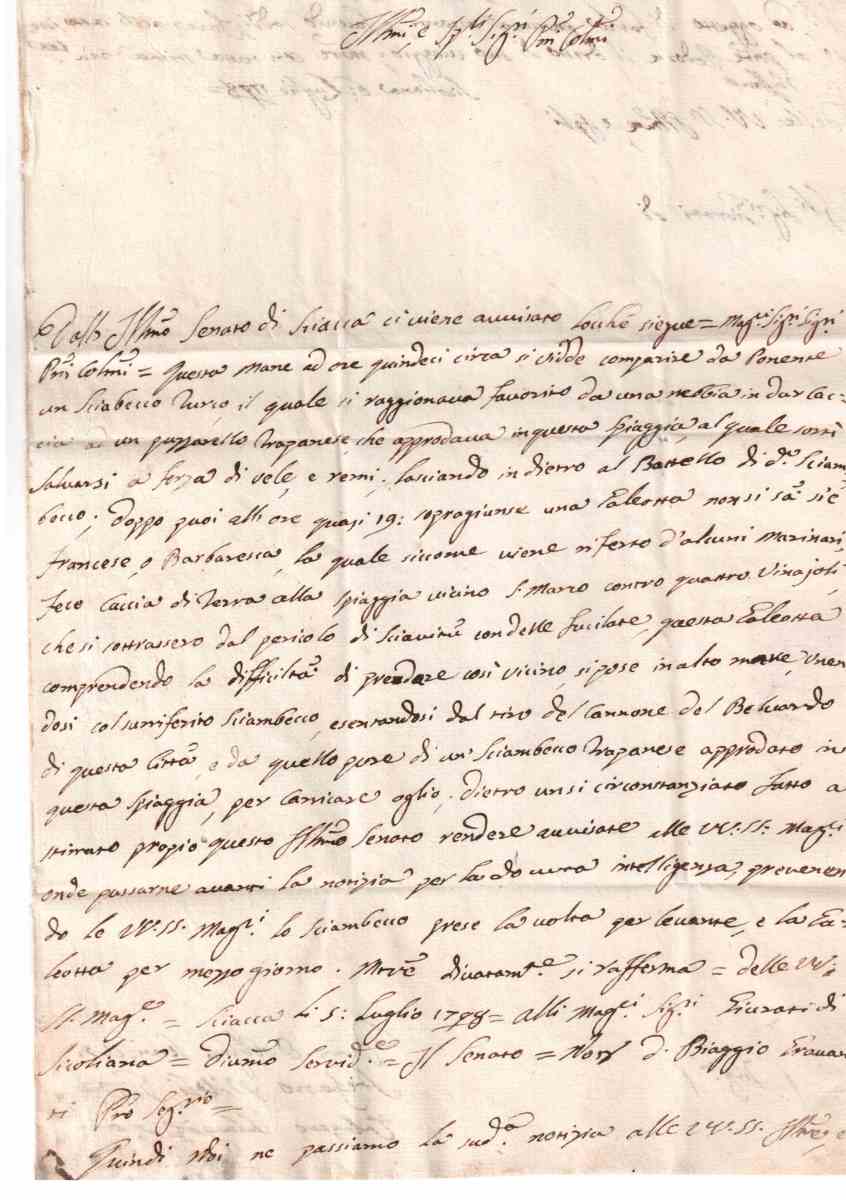 Illmi, e Sp.li Sig.ri P.ni Colmi
Dall' Illmo Senato di Sciacca ci viene avvisato locchè siegue = Mag.ci Sig.ri Sig.ri
P.ni Colmi = Questa mane ad ore quindeci circa si vidde comparire da Ponente
un Sciabecco Turco, il quale si raggionava favorito da una nebbia in dar cac-
cia ad un puzzarello Trapanese, che approdava in questa spiaggia, al quale sortì
salvarsi a forza di vele, e remi; lasciando in dietro al Battello di d.o Sciam
becco; doppo puoi alli ore quasi 19: sopragiunse una Galeotta non si sà si è
francese, o Barbaresca, la quale siccome viene riferto d'alcuni marinari,
fece caccia di Terra alla spiaggia vicino S. Marco contro quattro Vinajoli,
che si sottrassero dal pericolo di Sciavitù con delle fucilate, questa Galeotta
comprendendo la difficiltà di prendere così vicino, si pose in alto mare, unen
dosi col surriferito Sciambecco, esentandosi dal tiro del Cannone del Beluardo
di questa Città, e da quello pure di un Sciambecco Trapanese approdato in
questa spiaggia, per carricare oglio; dietro un si circonstanziato fatto a
stimato propio questo Illmo Senato rendere avvisate alle VV: SS: Mag.ci
onde passarne avanti la notizia per la dovuta intelligenza, prevenen
do le VV: SS: Mag.ci lo Sciambecco prese la volta per levante, e la Ga-
leotta per mezzo giorno. divotam.te si rafferma = delle VV:
SS. Mag.ce = Sciacca li 5: Luglio 1798 = alli Mag.ci Sig.ri Giurati di
Siculiana = divmo Servid.e = Il Senato = Not.r D. Biaggio Travan
ti Pro Seg.rio =
Quindi Noi ne passiamo la sud.a notizia alle VV: SS: Illme, e